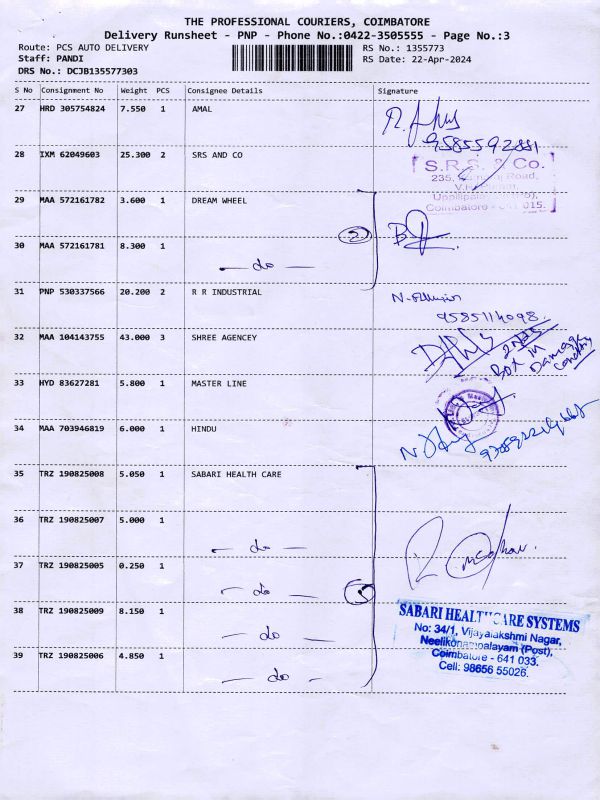 THE PROFESSIONAL COURIERS, COIMBATORE
Delivery Runsheet - PNP - Phone No.:0422-3505555 - Page No.:3
Route: PCS AUTO DELIVERY RS No.: 1355773
Staff: PANDI RS Date: 22-Apr-2024
DRS No.: DCJB135577303
S No Consignment No Weight PCS Consignee Details Signature
27 HRD 305754824 7.550 1 AMAL
9585592881
28 IXM 62049603 25.300 2 SRS AND CO
S.R.S. & Co.
235, Road,
Coimbatore - 641 015.
29 MAA 572161782 3.600 1 DREAM WHEEL
2
30 MAA 572161781 8.300 1
— do —
31 PNP 530337566 20.200 2 R R INDUSTRIAL
9585114098.
32 MAA 104143755 43.000 3 SHREE AGENCEY
2 Nos
Box in
Damage
Condition
33 HYD 83627281 5.800 1 MASTER LINE
34 MAA 703946819 6.000 1 HINDU
35 TRZ 190825008 5.050 1 SABARI HEALTH CARE
36 TRZ 190825007 5.000 1
— do —
37 TRZ 190825005 0.250 1
— do —
5
38 TRZ 190825009 8.150 1
— do —
39 TRZ 190825006 4.850 1
— do —
SABARI HEALTHCARE SYSTEMS
No: 34/1, Vijayalakshmi Nagar,
Neelikonampalayam (Post),
Coimbatore - 641 033.
Cell: 98656 55026.